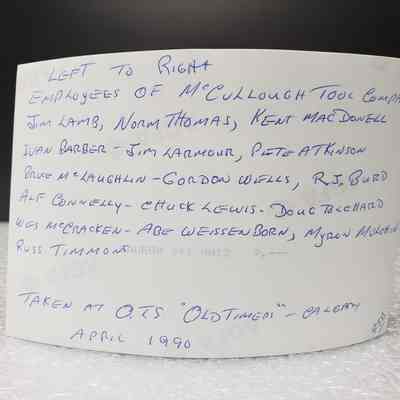 LEFT TO RIGHT
EMPLOYEES OF McCULLOUGH TOOL COMPA
JIM LAMB, NORM THOMAS, KENT MACDONELL
IVAN BARBER - JIM LARMOUR, PETE ATKINSON
BRUCE McLAUGHLIN - GORDON WELLS, R.J. BURD
ALF CONNELLY - CHUCK LEWIS - DOUG
WES McCRACKEN - ABE WEISSENBORN, MYRON
RUSS TIMMONS
TAKEN AT O.T.S "OLDTIMERS" - CALGARY
APRIL 1990